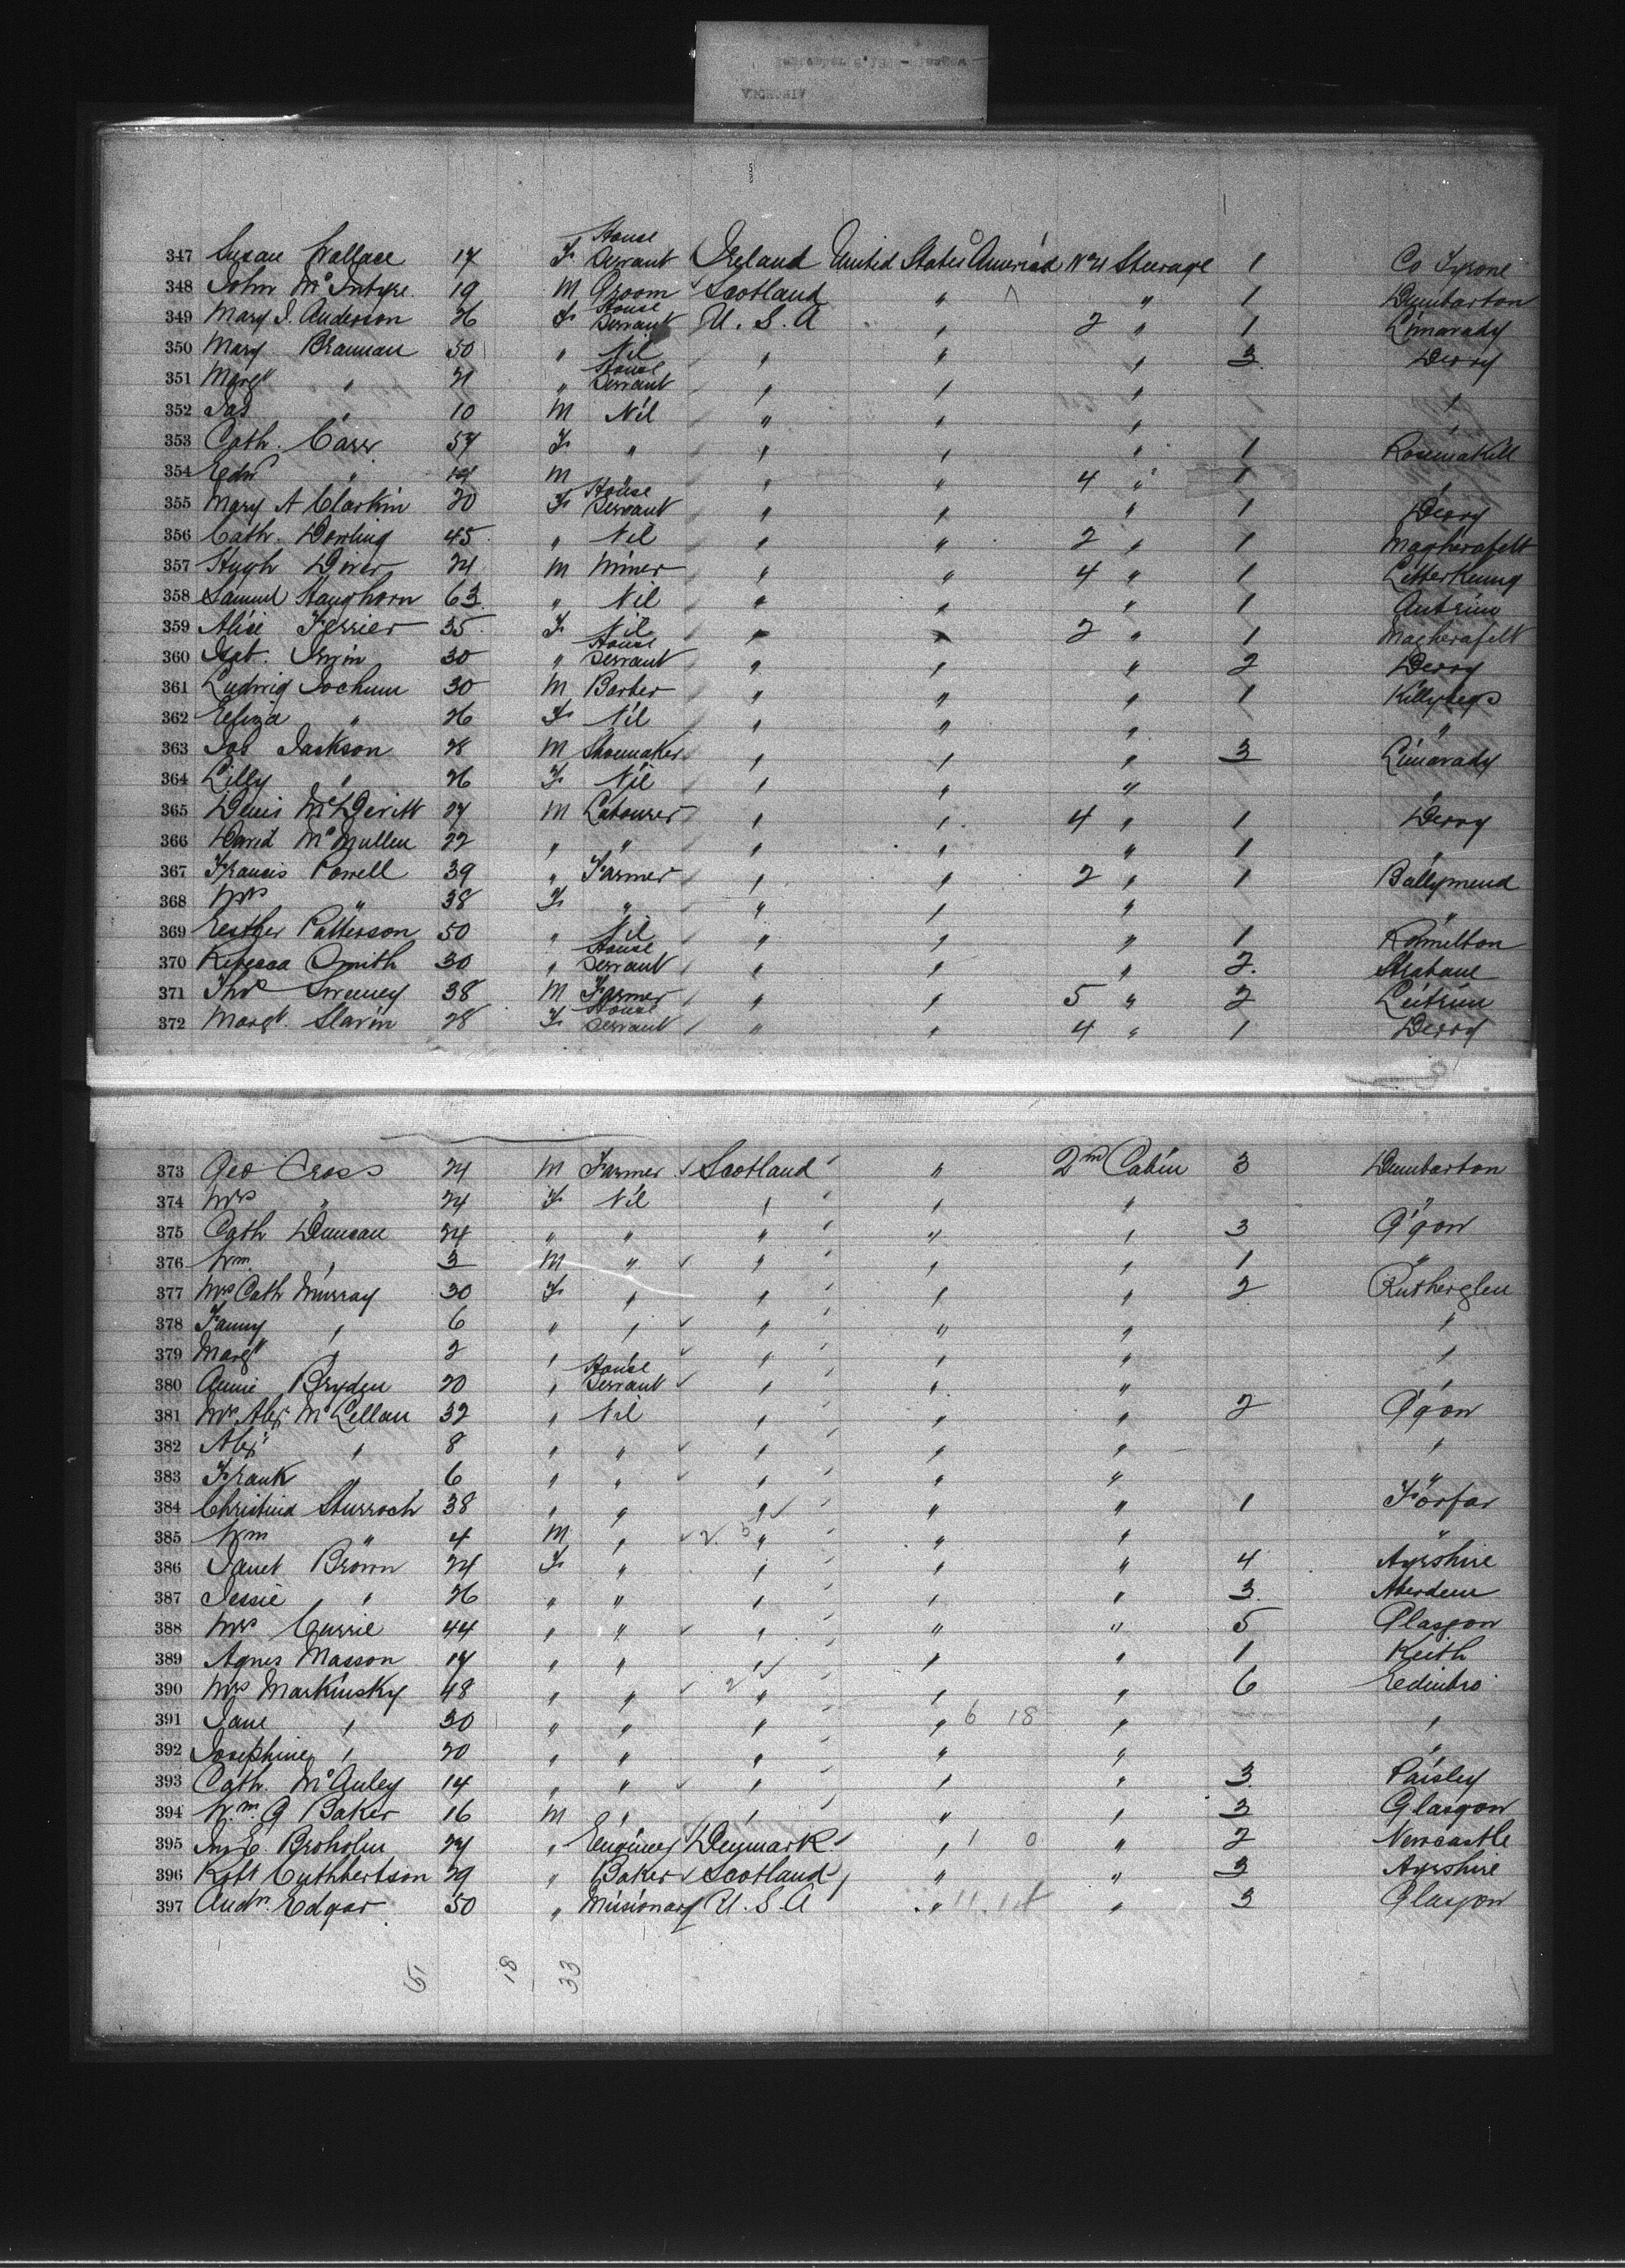 347 Susan Wallace 17 F House Servant Ireland United States America No 4 Steerage 1 Co Tyrone
348 John McIntyre 19 M Groom Scotland " " 1 Dumbarton
349 Mary J. Anderson 26 F House Servant U.S.A " 2 " 1 Limavady
350 Mary Brannan 50 " Nil " " " 3 Derry
351 Margt " 21 " House Servant " " " "
352 Jas " 10 M Nil " " " "
353 Cath. Carr 57 F " " " " 1
354 Edw " M " " " 4 " 1 "
355 Mary A Clarkin 20 F House Servant " " " 1 Derry
356 Cath. Dowling 45 " Nil " " 2 " 1 Magherafelt
357 Hugh Diver 24 M Miner " " 4 " 1 Letterkenny
358 Samuel Haughorn 63 " Nil " " " 1 Antrim
359 Alice Ferrier 35 F Nil " " 2 " 1 Magherafelt
360 Isab. Irvin 30 " House Servant " " " 2 Derry
361 Ludwig Jochum 30 M Barber " " " 1 Killybegs
362 Eliza " 26 F Nil " " " "
363 Jas Jackson 28 M Shoemaker " " " 3 Limavady
364 Lilly " 26 F Nil " " " "
365 Denis McDevitt 27 M Labourer " " 4 " 1 Derry
366 David McMullen 22 " " " " " 1 "
367 Francis Powell 39 " Farmer " " 2 " 1 Ballymena
368 Mrs " 38 F " " " " "
369 Esther Patterson 50 " Nil " " " 1 Ramelton
370 Rebecca Smith 30 " House Servant " " " 2 Strabane
371 Thos Sweeney 38 M Farmer " " 5 " 2 Leitrim
372 Margt. Slavin 28 F House Servant " " 4 " 1 Derry
373 Geo Cross 24 M Farmer Scotland " 2nd Cabin 3 Dumbarton
374 Mrs " 24 F Nil " " " "
375 Cath Duncan 24 " " " " " 3 G'gow
376 Wm. " 3 M " " " " 1 "
377 Mrs Cath Murray 30 F " " " " 2 Rutherglen
378 Fanny " 6 " " " " " "
379 Margt " 2 " " " " " "
380 Annie Bryden 20 " House Servant " " " "
381 Mrs Alex McLellan 32 " Nil " " " 2 G'gow
382 Alexr " 8 " " " " " "
383 Frank " 6 " " " " " "
384 Christina Sturroch 38 " " " " " 1 Forfar
385 Wm " 4 M " " " " "
386 Janet Brown 24 F " " " " 4 Ayrshire
387 Jessie " 26 " " " " " 3 Aberdeen
388 Mrs Currie 44 " " " " " 5 Glasgow
389 Agnes Masson 17 " " " " " 1 Keith
390 Mrs Markinsky 48 " " " " " 6 Edinbro
391 Jane " 30 " " " " 6 18 " "
392 Josephine " 20 " " " " " "
393 Cath. McAuley 14 " " " " " 3 Paisley
394 Wm. G Baker 16 M " " " " 3 Glasgow
395 Broholm 24 " Engineer Denmark " 1 0 " 2 Newcastle
396 Robt Cuthbertson 29 " Baker Scotland " " 3 Ayrshire
397 Andw. Edgar 50 " Missionary U.S.A " " 3 Glasgow
18 33